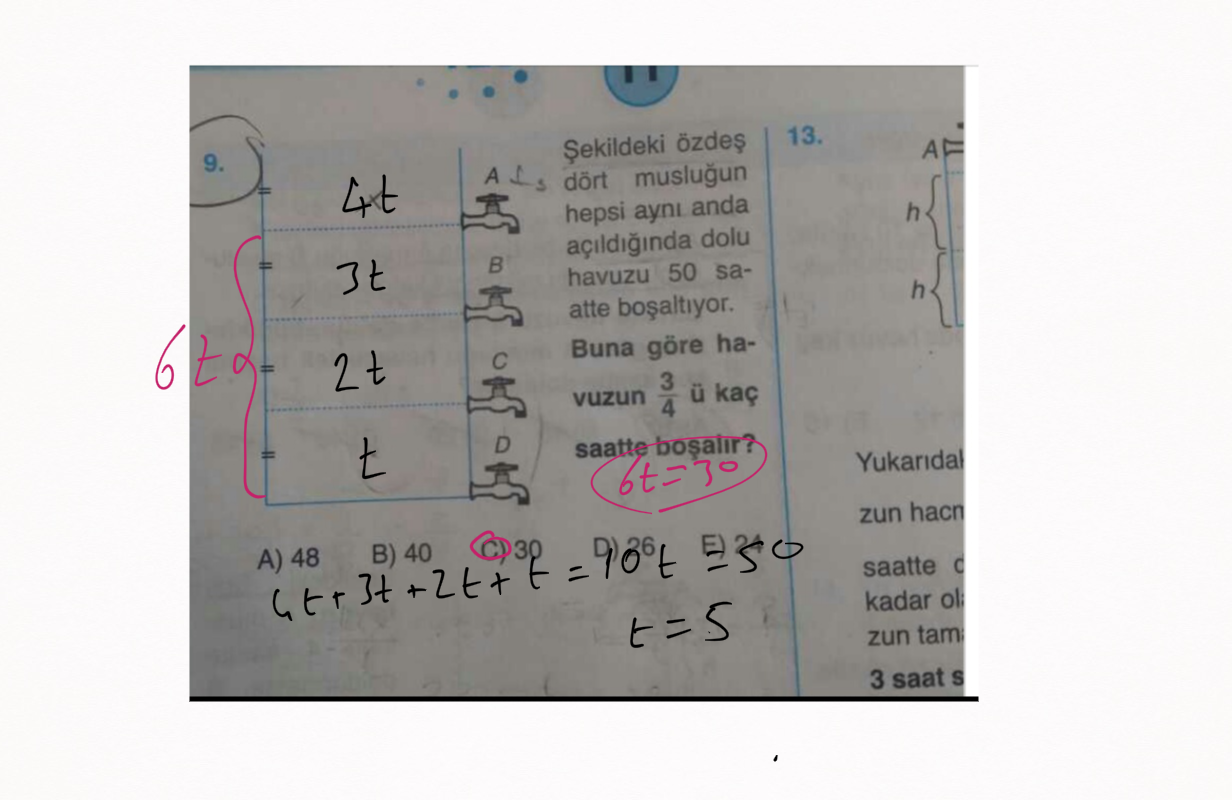 11
9.
Şekildeki özdeş
dört musluğun
hepsi aynı anda
açıldığında dolu
havuzu 50 sa-
atte boşaltıyor.
Buna göre ha-
vuzun 3/4 ü kaç
saatte boşalır?
A
B
C
D
4t
3t
2t
t
6t
6t=30
A) 48 B) 40 C) 30 D) 26 E) 24
4t+3t+2t+t=10t=50
t=5
13.
A
h
h
zun hacm
saatte
kadar
zun
3 saat